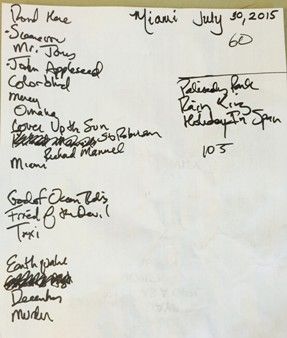 Miami July 30, 2015
60
Round Here
Scarecrow
Mr. Jones
John Appleseed
Colorblind
Mercy
Omaha
Cover Up the Sun
St Robinson
Richard Manuel
Miami
God of Ocean Tides
Friend of the Devil
Taxi
Earthquake
December
Murder
Palisades Park
Rain King
Holiday In Spain
105